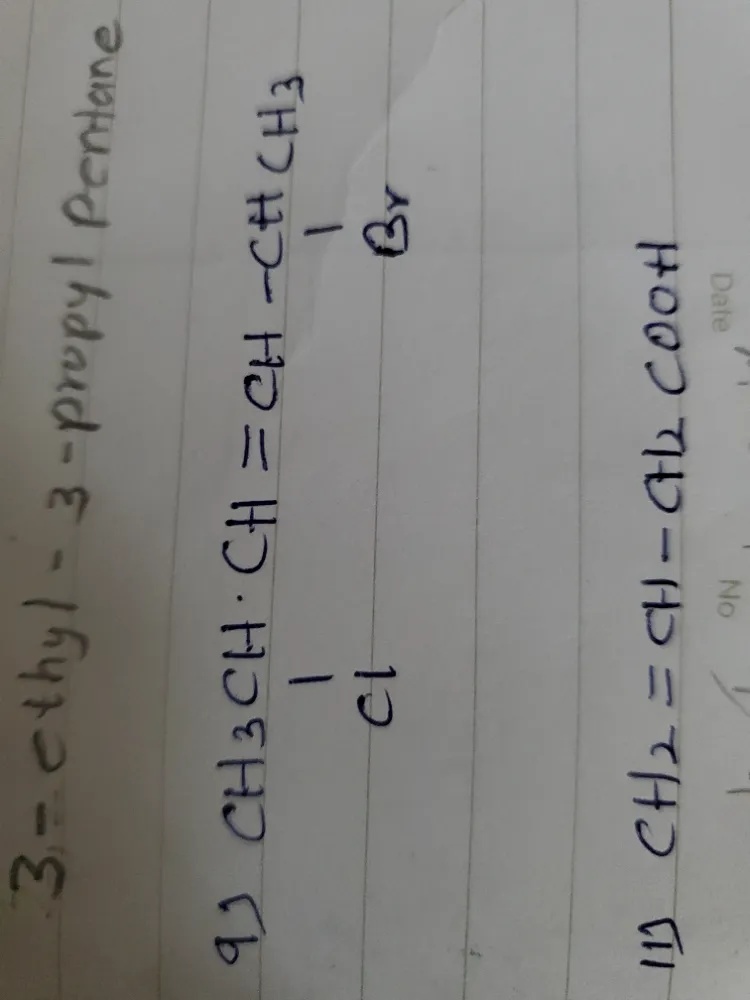 3-ethyl-3-propyl pentane
9) CH3CH·CH=CH-CHCH3
Cl Br
11) CH2=CH-CH2COOH
Date
No